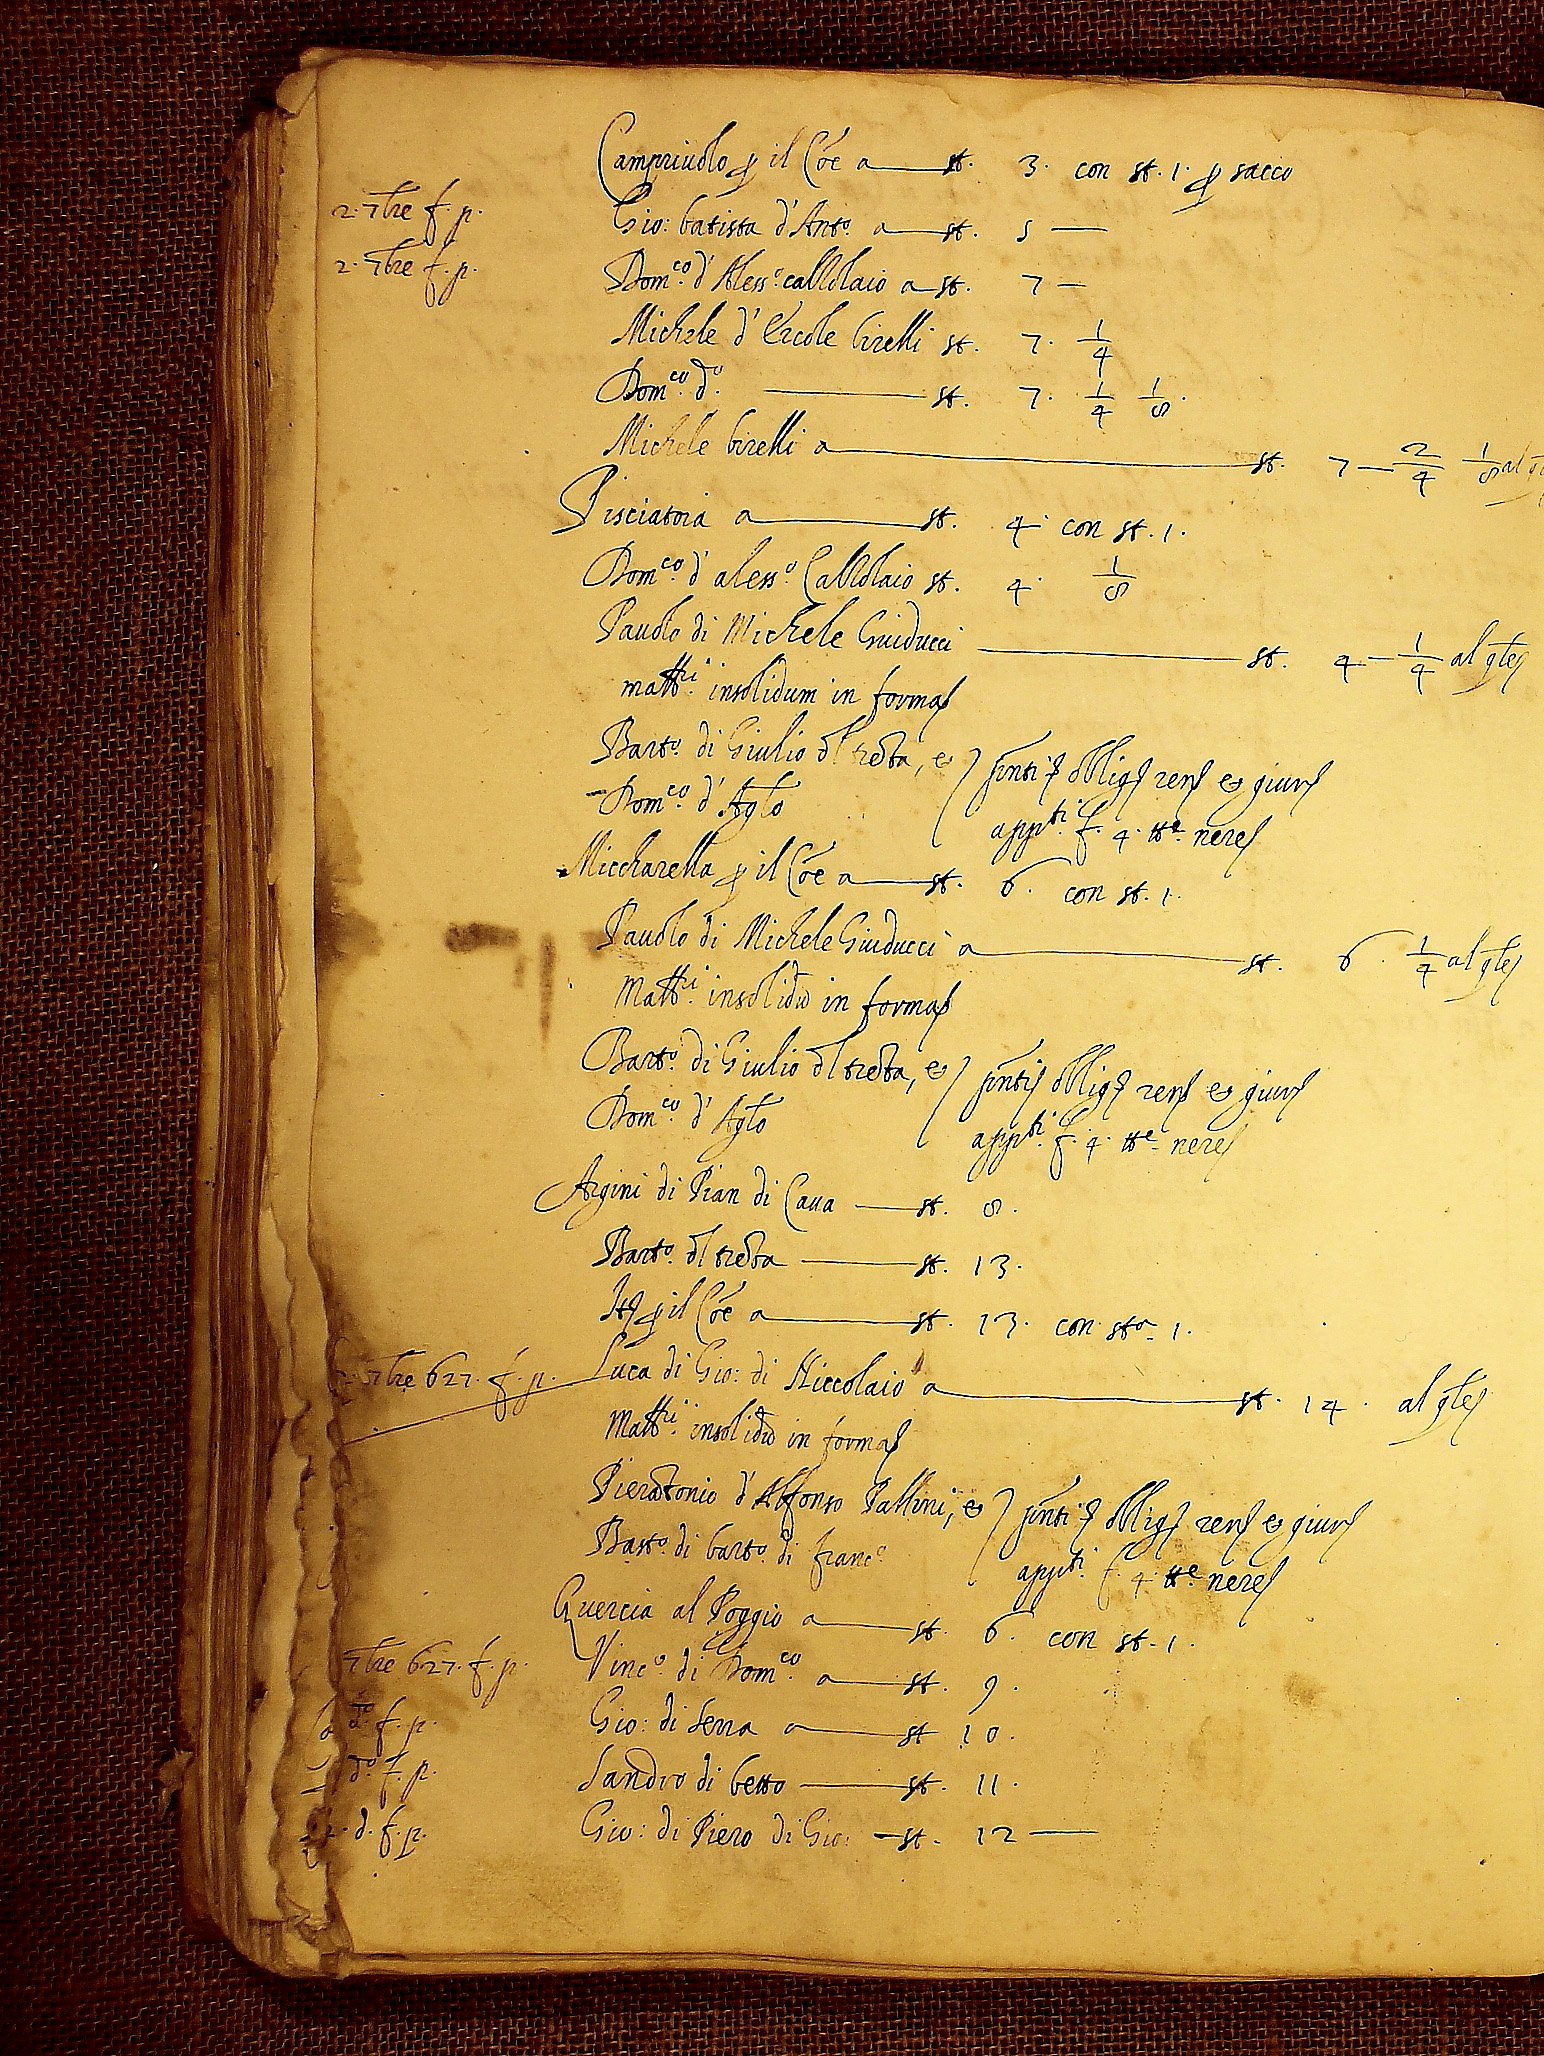 Campriuolo p il Cõe a — st. 3. con st. 1. p sacco
2. 7bre f. p. Gio: batista d'Ant.o a — st. 5 —
2. 7bre f. p. Dom.co d'Aless.o calzolaio a — st. 7 —
Michele d'Ercole birelli st. 7. 1/4
Dom.co d.o — st. 7. 1/4 1/8.
Michele birelli a — st. 7 — 2/4 1/8 al
Pisciatoia a — st. 4. con st. 1.
Dom.co d'aless.o Calzolaio st. 4. 1/8
Pauolo di Michele Guiducci — st. 4 — 1/4 al qle
mall.ri insolidum in forma
Bart.o di Giulio del tredta, e
Dom.co d'Aglo
pnti p obligh ren e giur
app.ti f. 4. tt.e nere
Miccharella p il Cõe a — st. 6. con st. 1.
Pauolo di Michele Guiducci a — st. 6. 1/4 al qle
Mall.ri insolidũ in forma
Bart.o di Giulio del tredta, e
Dom.co d'Aglo
pnti p obligh ren e giur
app.ti f. 4. tt.e nere
Argini di Pian di Caua — st. 8.
Bart.o del tredta — st. 13.
p il Cõe a — st. 13. con st.a 1.
7bre 627. f. p. Luca di Gio: di Niccolaio a — st. 14. al qle
Mall.ri insolidũ in forma
Pierãtonio d'Alfonso Pallini, e
Bart.o di bart.o di franc.o
pnti p obligh ren e giur
app.ti f. 4. tt.e nere
Quercia al Poggio a — st. 6. con st. 1.
7bre 627. f. p. Vinc.o di Dom.co a — st. 9.
d.o f. p. Gio: di Sena a — st 10.
d.o f. p. Sandro di betto — st. 11.
d. f. p. Gio: di Piero di Gio: — st. 12 —